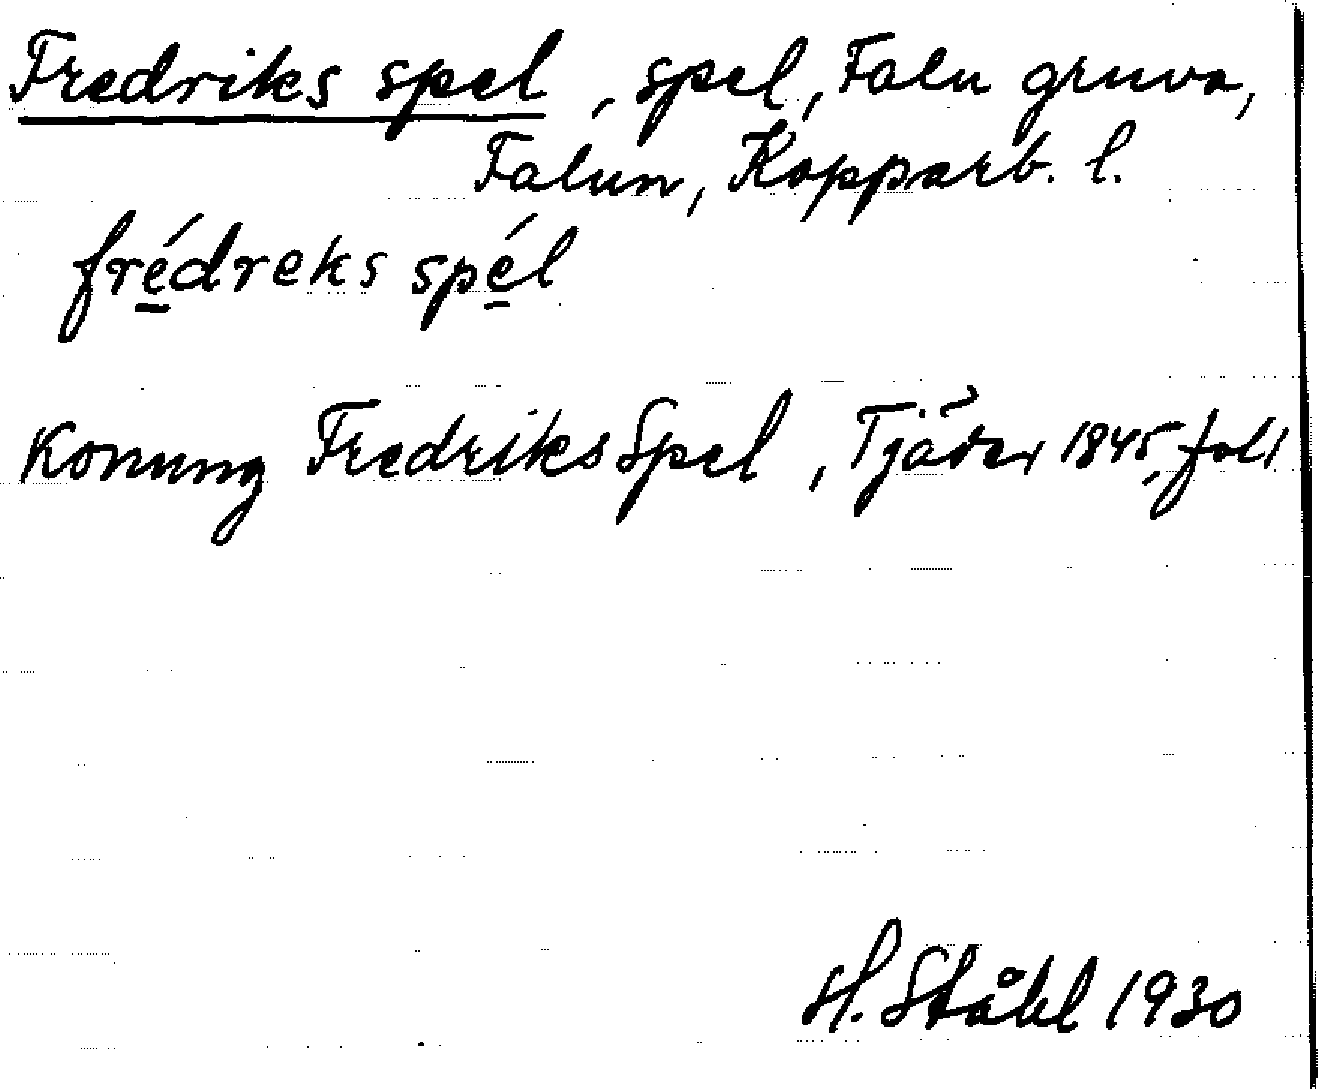 Fredriks spel, spel, Falu gruva,
Falun, Kopparb. l.
fré̱dreks spé̱l
Konung Fredriks Spel, Tjäder 1845, fol 1
H. Ståhl 1930